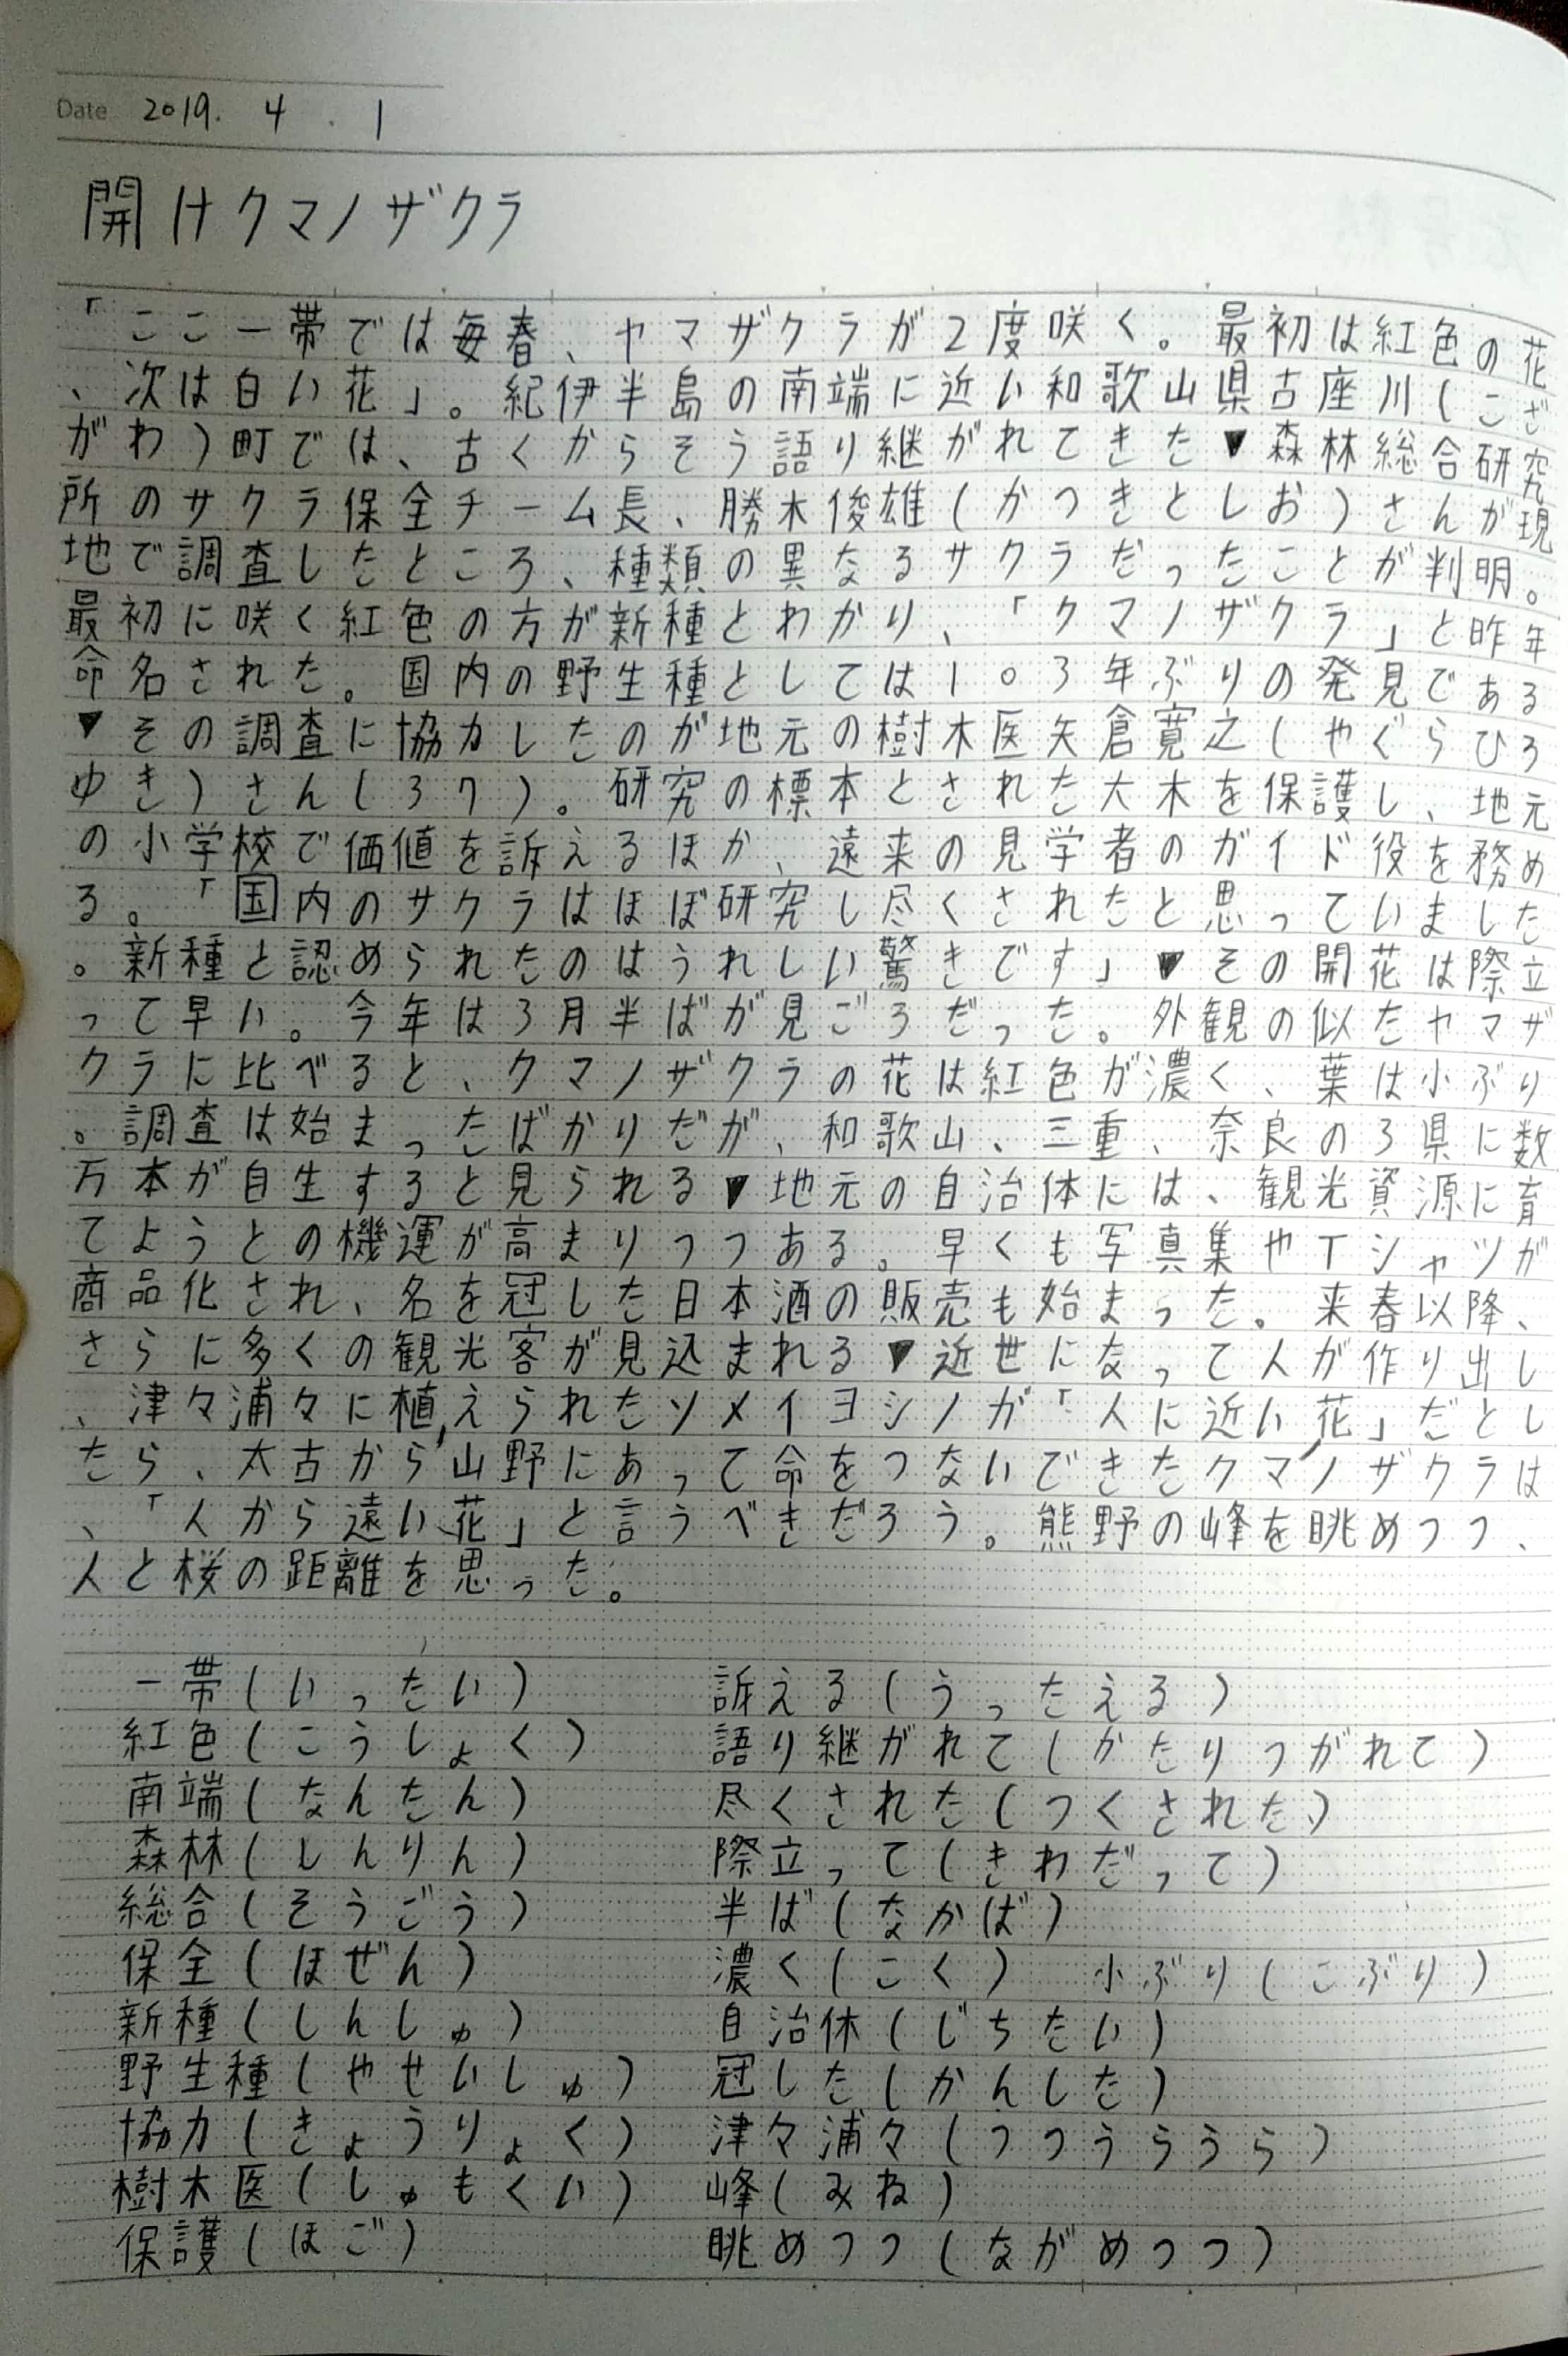 Date 2019. 4 . 1
開けクマノザクラ
「ここ一帯では毎春、ヤマザクラが2度咲く。最初は紅色の花
、次は白い花」。紀伊半島の南端に近い和歌山県古座川(こざ
がわ)町では、古くからそう語り継がれてきた▼森林総合研究
所のサクラ保全チーム長、勝木俊雄(かつきとしお)さんが現
地で調査したところ、種類の異なるサクラだったことが判明。
最初に咲く紅色の方が新種とわかり、「クマノザクラ」と昨年
命名された。国内の野生種としては103年ぶりの発見である
▼その調査に協力したのが地元の樹木医矢倉寛之(やぐらひろ
ゆき)さん(37)。研究の標本とされた大木を保護し、地元
の小学校で価値を訴えるほか、遠来の見学者のガイド役を務め
る。「国内のサクラはほぼ研究し尽くされたと思っていました
。新種と認められたのはうれしい驚きです」▼その開花は際立
って早い。今年は3月半ばが見ごろだった。外観の似たヤマザ
クラに比べると、クマノザクラの花は紅色が濃く、葉は小ぶり
。調査は始まったばかりだが、和歌山、三重、奈良の3県に数
万本が自生すると見られる▼地元の自治体には、観光資源に育
てようとの機運が高まりつつある。早くも写真集やTシャツが
商品化され、名を冠した日本酒の販売も始まった。来春以降、
さらに多くの観光客が見込まれる▼近世になって人が作り出し
、津々浦々に植えられたソメイヨシノが「人に近い花」だとし
たら、太古から山野にあって命をつないできたクマノザクラは
、「人から遠い花」と言うべきだろう。熊野の峰を眺めつつ、
人と桜の距離を思った。
一帯(いったい)
紅色(こうしょく)
南端(なんたん)
森林(しんりん)
総合(そうごう)
保全(ほぜん)
新種(しんしゅ)
野生種(やせいしゅ)
協力(きょうりょく)
樹木医(しゅもくい)
保護(ほご)
訴える(うったえる)
語り継がれて(かたりつがれて)
尽くされた(つくされた)
際立って(きわだって)
半ば(なかば)
濃く(こく) 小ぶり(こぶり)
自治体(じちたい)
冠した(かんした)
津々浦々(つつうらうら)
峰(みね)
眺めつつ(ながめつつ)